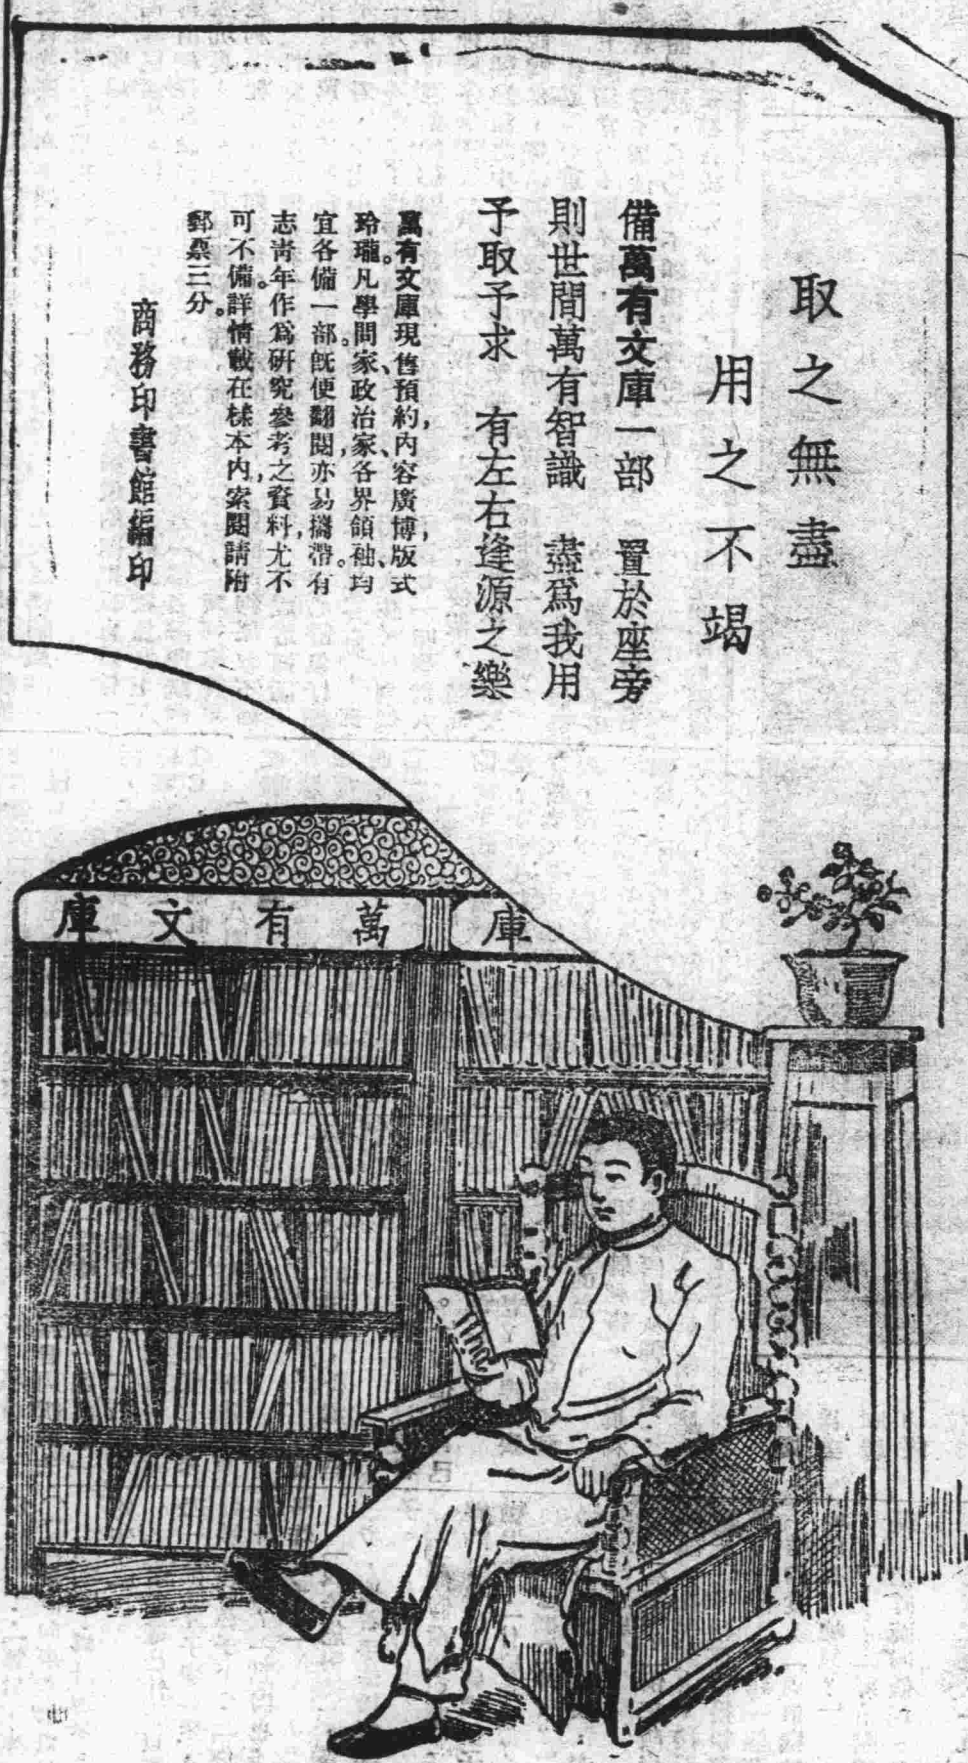 取之無盡
用之不竭
備萬有文庫一部　置於座旁
則世間萬有智識　盡爲我用
予取予求　有左右逢源之樂
萬有文庫現售預約,內容廣博,版式
玲瓏。凡學問家、政治家、各界領袖、均
宜各備一部。旣便翻閱,亦易攜帶。有
志靑年作爲硏究參考之資料,尤不
可不備。詳情載在樣本內,索閱請附
郵票三分。
商務印書館編印
庫文有萬
庫